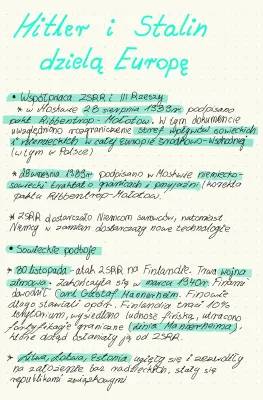 Hitler i Stalin
dzielą Europę
• Współpraca ZSRR i III Rzeszy
* w Moskwie 23 sierpnia 1939r. podpisano
pakt Ribbentrop-Mołotow. W tym dokumencie
uwzględniono rozgraniczenie stref wpływów sowieckich
i niemieckich w całej Europie Środkowo-Wschodniej
(w tym w Polsce)
* 28 września 1939r podpisano w Moskwie niemiecko-
sowiecki traktat o granicach i przyjaźni (korekta
paktu Ribbentrop-Mołotow.
* ZSRR dostarczało Niemcom surowców, natomiast
Niemcy w zamian dostarczały nowe technologie
• Sowieckie podboje
* 30 listopada - atak ZSRR na Finlandię. Trwa wojna
zimowa. Zakończyła się w marcu 1940r. Finami
dowodził Carl Gustaf Mannerheim. Finowie
długo stawiali opór. Finlandia traci 10%
terytorium, wysiedlono ludność fińską, utracono
fortyfikacje graniczne (linia Mannerheima),
które odtąd dostały się od ZSRR.
* Litwa, Łotwa, Estonia ugięły się i zezwoliły
na założenie baz radzieckich, stały się
republikami związkowymi